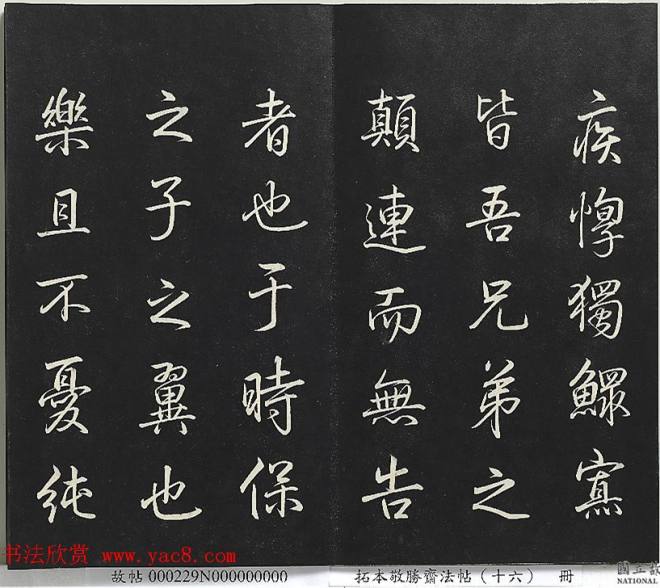 疾惸獨鰥寡
皆吾兄弟之
顛連而無告
者也于時保
之子之翼也
樂且不憂純
书法欣赏 www.yac8.com
故帖 000229N000000000
拓本敬勝齋法帖（十六） 冊
國立故
NATIONA